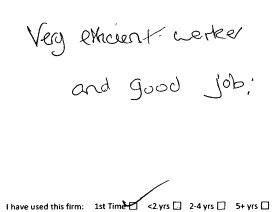 Very efficient worker
and good job.
I have used this firm: 1st Time ☑ <2 yrs ☐ 2-4 yrs ☐ 5+ yrs ☐